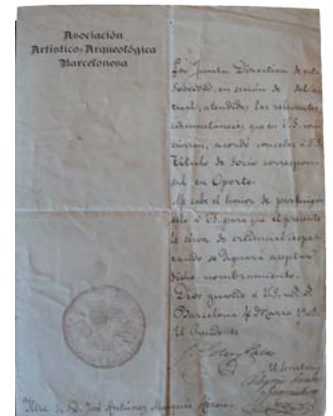 Asociación
Artístico-Arqueológica
Barcelonesa
La Junta Directiva de esta
Sociedad, en sesión de del ac
tual, atendidas las relevantes
circunstancias que en V.S. con
curren, acordó concederle el
Título de Socio correspon
sal en Oporto.
Me cabe el honor de participár
selo á V.S. para que el presente
le sirva de credencial, espe
rando se dignará aceptar
dicho nombramiento.
Dios guarde á V.S. m. a.
Barcelona 4 Marzo
El Presidente
El Secretario
Iltre. S. D. José